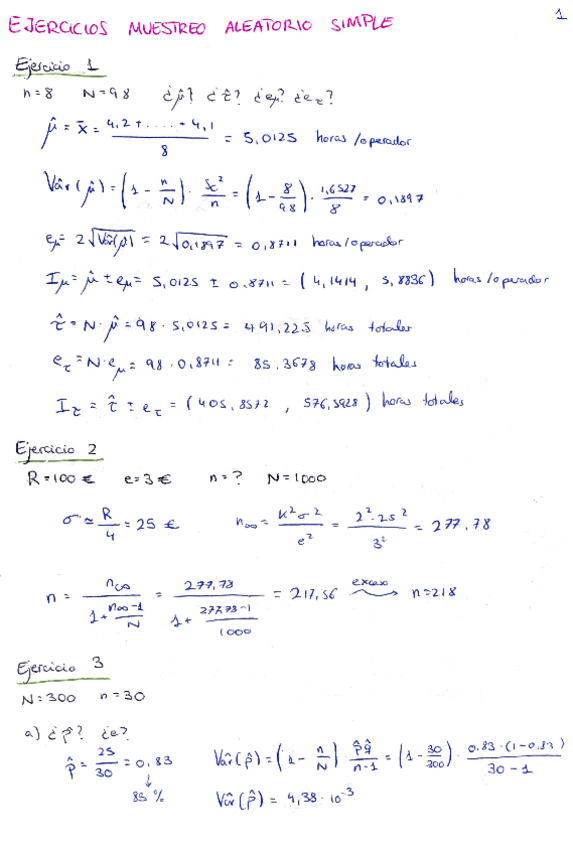 EJERCICIOS MUESTREO ALEATORIO SIMPLE 1
Ejercicio 1
n=8 N=98 ¿μ̂? ¿τ̂? ¿eμ? ¿eτ?
μ̂ = x̄ = (4,2 + ..... + 4,1)/8 = 5,0125 horas/operador
Vâr(μ̂) = (1 - n/N) · Sc²/n = (1 - 8/98) · 1,6527/8 = 0,1897
eμ = 2√Vâr(μ̂) = 2√0,1897 = 0,8711 horas/operador
Iμ = μ̂ ± eμ = 5,0125 ± 0,8711 = (4,1414, 5,8836) horas/operador
τ̂ = N·μ̂ = 98 · 5,0125 = 491,225 horas totales
eτ = N·eμ = 98 · 0,8711 = 85,3678 horas totales
Iτ = τ̂ ± eτ = (405,8572, 576,5928) horas totales
Ejercicio 2
R=100 € e=3 € n=? N=1000
σ ≃ R/4 = 25 € n∞ = K²σ²/e² = 2²·25²/3² = 277,78
n = n∞/(1 + (n∞-1)/N) = 277,78/(1 + (277,78-1)/1000) = 217,56 exceso → n=218
Ejercicio 3
N=300 n=30
a) ¿p̂? ¿e?
p̂ = 25/30 = 0,83 Vâr(p̂) = (1 - n/N) p̂q̂/(n-1) = (1 - 30/300) · 0,83·(1-0,83)/(30-1)
↓
83 % Vâr(p̂) = 4,38 · 10⁻³